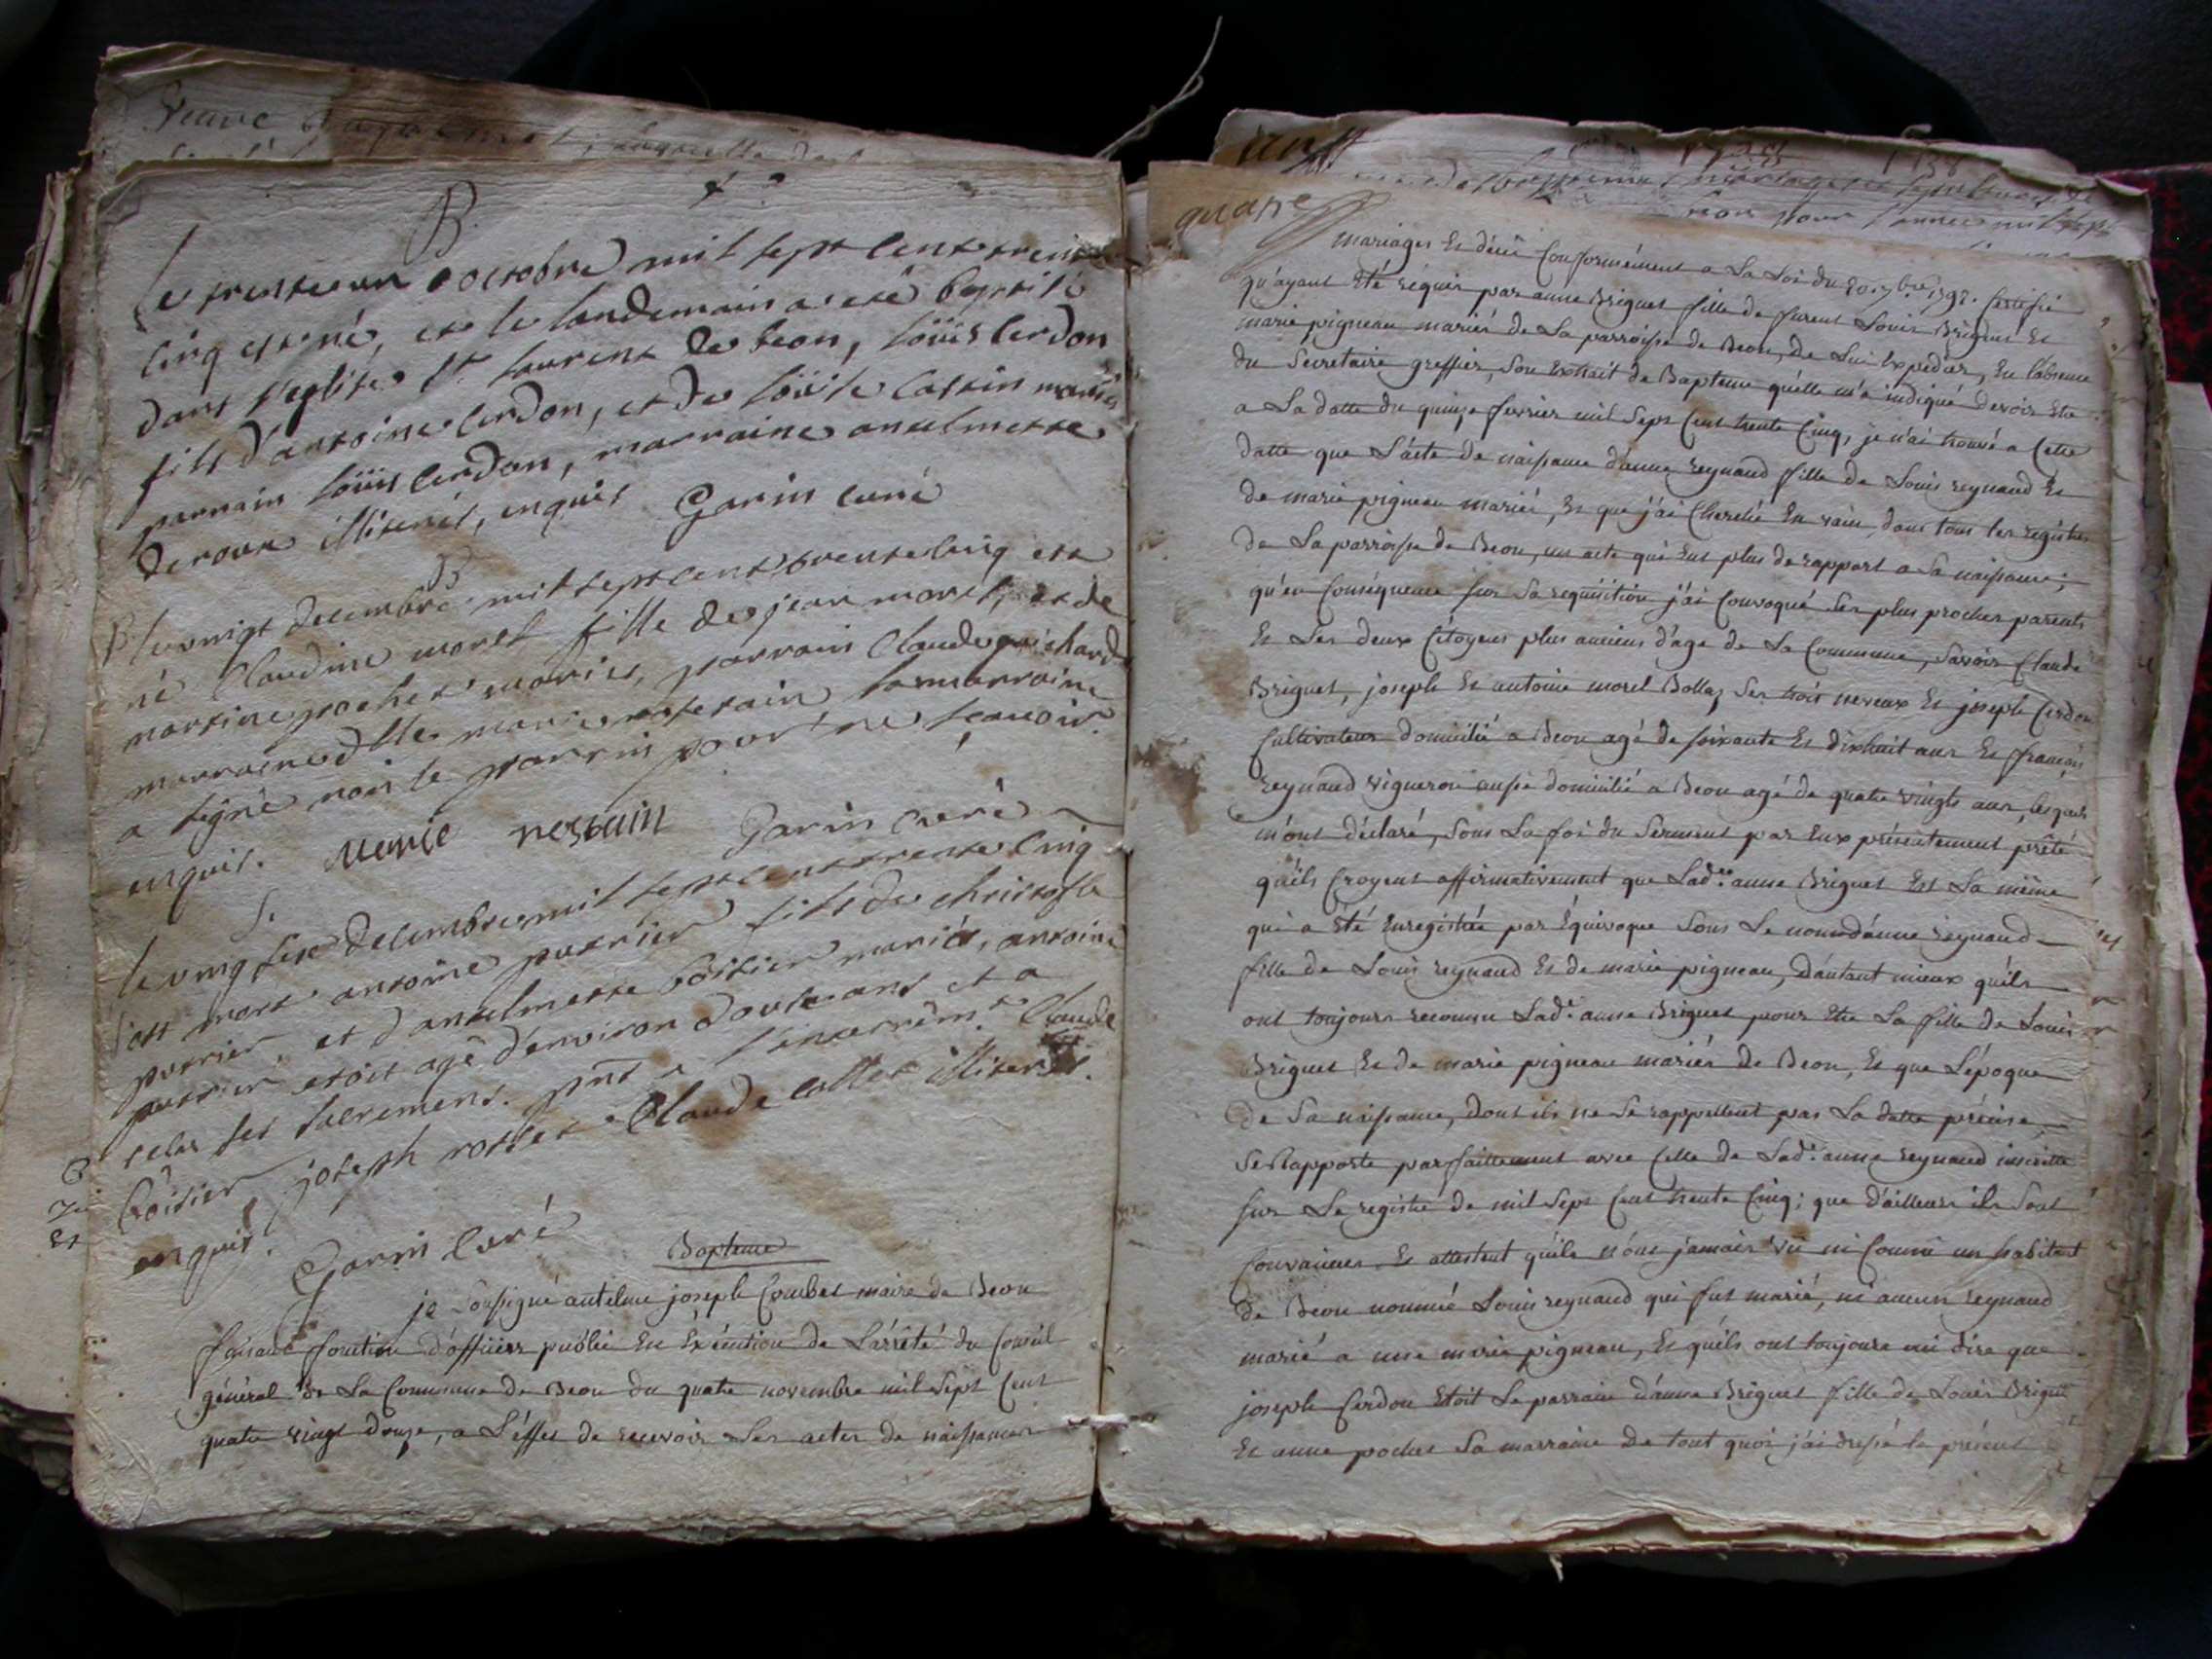 Veuve
B.
Le trente un octobre mil sept cent trente
cinq est né, et le landemain a eté baptisé
dans l'eglise St laurent de beon, loüis cerdon
fils d'antoine cerdon, et de loüise cassin mariés
parrain loüis cerdon, marraine anselmette
deroux illiterés, enquis Garin curé
B
B le vingt decembre mil sept cent trente cinq est
né Claudine morel fille de jean morel, et de
martine pochet mariés, parrain Claude guichard
marraine dlle marie la marraine
a signé non le parrin pour ne sçavoir
enquis. Marie Garin curé
S.
le vingt sixe decembre mil sept cent trente cinq
est mort antoine perrier fils de christofle
perrier, et d'anselmette boitier mariés, antoine
perrier etoit agé d'environ douze ans et a
reçu ses sacremens. pnt a l'interremt. Claude
boitier joseph rosset Claude collet illiterés.
enquis. Garin Curé
Bapteme
je Soussigné antelme joseph Combet maire de Beon
faisant fonction d'officier public En Exécution de L'arrêté du Conseil
général de La Commune de Beon du quatre novembre mil Sept Cent
quatre vingt douze, a L'éffet de recevoir Les actes de naissances
quatre
mariages Et décè Conformément a La Loi du 20. 7.bre 1792. Certifie
qu'ayant Eté réquis par anne Briguet fille de furent Louis Briguet Et
marie pigneau mariés de La parroisse de Beon, de Lui Expédier, En l'absence
du Secretaire greffier, Son Extrait de Bapteme quélle m'a indiqué devoir Etre
a La datte du quinze fevrier mil Sept Cent trente Cinq, je n'ai trouvé a Cette
datte que L'acte de naissance d'anne reynaud fille de Louis reynaud Et
de marie pigneau mariés, Et que j'ai Cherché En vain, dans tous les régistres
de La parroisse de Beon, un acte qui Eut plus de rapport a Sa naissance;
qu'en Conséquence Sur Sa requisition j'ai Convoqué Ses plus proches parents
Et Les deux Citoyens plus anciens d'age de La Commune, Savoir Claude
Briguet, joseph Et antoine morel Bollaz Ses trois neveux Et joseph Cerdon
Cultivateur domicilié a Beon agé de Soixante Et dixhuit ans Et françois
reynaud vigneron aussi domicilié a Beon agé de quatre vingts ans, lesquels
m'ont déclaré, Sous La foi du Serment par Eux présentement prêté
quéils Croyent affirmativement que Lad.e anne Briguet Est La même
qui a Eté Enregistrée par Équivoque Sous Le nom d'anne reynaud
fille de Louis reynaud Et de marie pigneau, D'autant mieux quéils
ont toujours reconnu Lad.e anne Briguet pour Etre La fille de Louis
Briguet Et de marie pigneau mariés de Beon, Et que L'époque
de Sa naissance, dont ils ne Se rappellent pas La datte précise
Se Rapporte parfaitement avec Celle de Lad.e anne reynaud inscritte
Sur Le registre de mil Sept Cent trente Cinq; que d'ailleurs ils Sont
Convaincus Et attestent quéils n'ont jamais vû ni Connû un habitant
de Beon nommé Louis reynaud qui fut marié, ni aucun reynaud
marié a une marie pigneau, Et quéils ont toujours oui dire que
joseph Cerdon Etoit Le parrain d'anne Briguet fille de Louis Briguet
Et anne pochet Sa marraine De tout quoi j'ai dressé le présent